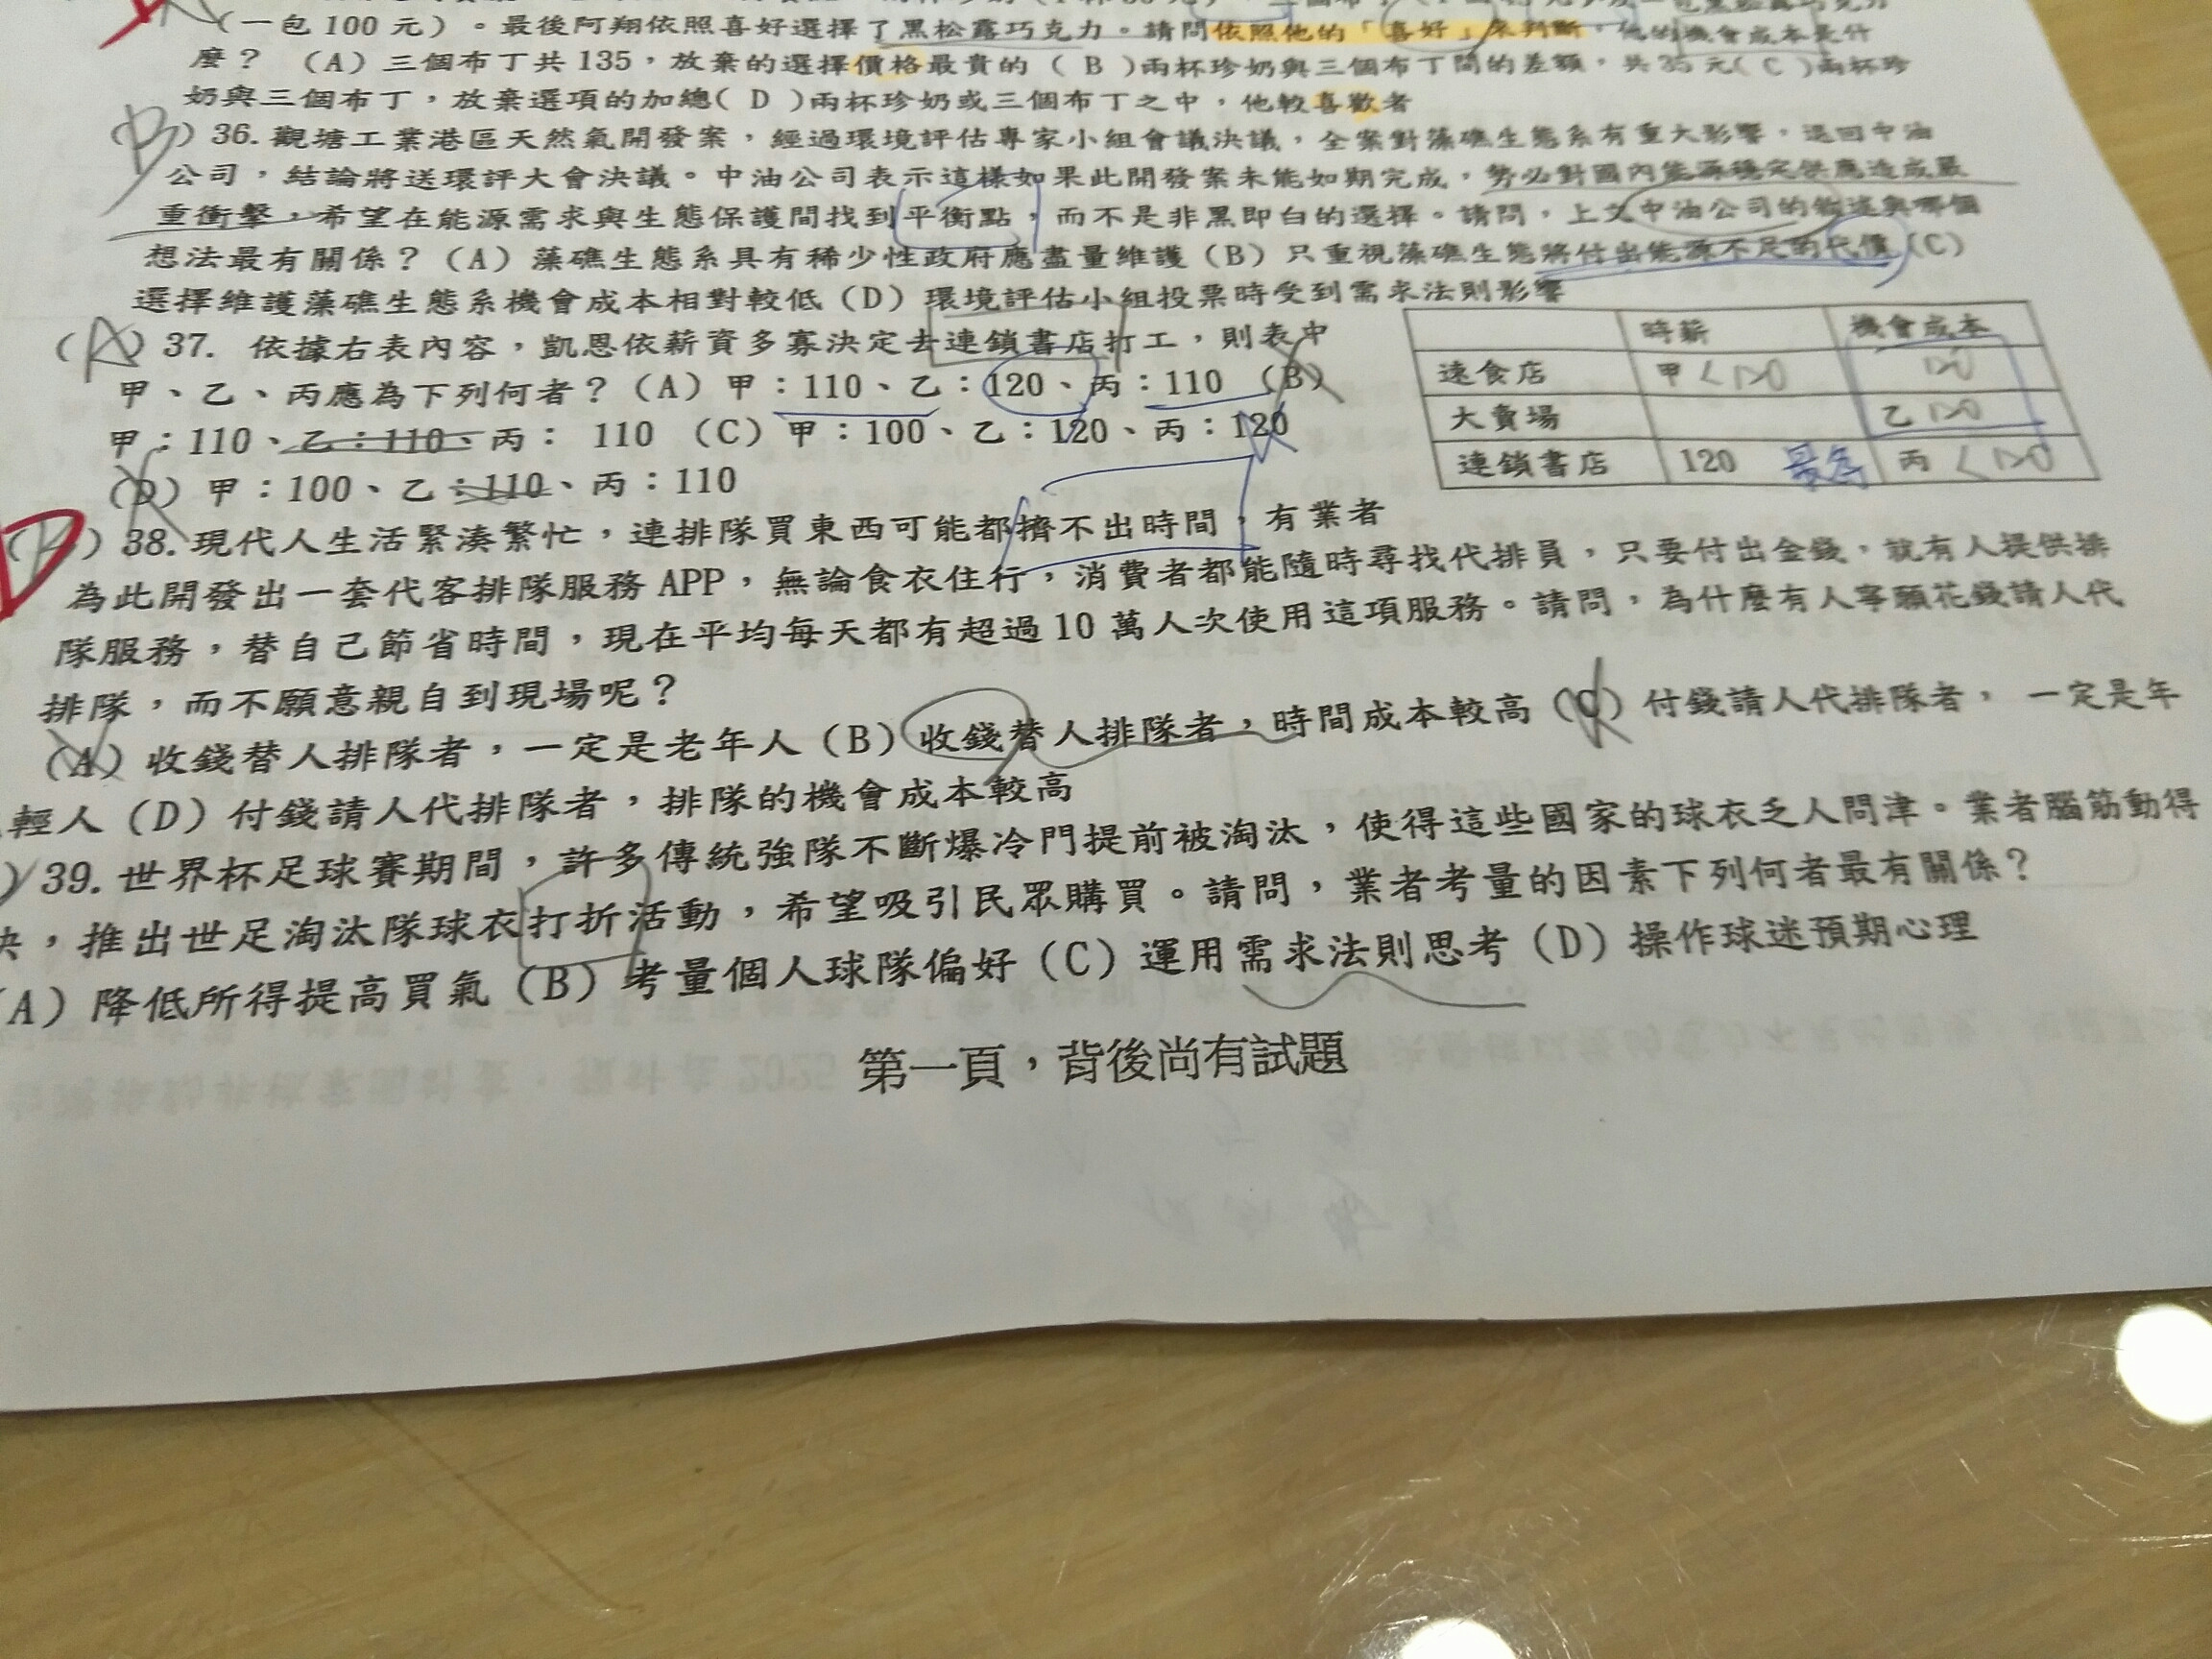 （一包100元）。最後阿翔依照喜好選擇了黑松露巧克力。請問依照他的「喜好」來判斷，他的機會成本是什
麼？ （A）三個布丁共135，放棄的選擇價格最貴的（ B ）兩杯珍奶與三個布丁間的差額，共35元（ C ）兩杯珍
奶與三個布丁，放棄選項的加總（ D ）兩杯珍奶或三個布丁之中，他較喜歡者
(B) 36. 觀塘工業港區天然氣開發案，經過環境評估專家小組會議決議，全案對藻礁生態系有重大影響，退回中油
公司，結論將送環評大會決議。中油公司表示這樣如果此開發案未能如期完成，勢必對國內能源穩定供應造成嚴
重衝擊，希望在能源需求與生態保護間找到平衡點，而不是非黑即白的選擇。請問，上文中油公司的敘述與哪個
想法最有關係？（A）藻礁生態系具有稀少性政府應盡量維護（B）只重視藻礁生態將付出能源不足的代價（C）
選擇維護藻礁生態系機會成本相對較低（D）環境評估小組投票時受到需求法則影響
(A) 37. 依據右表內容，凱恩依薪資多寡決定去連鎖書店打工，則表中
甲、乙、丙應為下列何者？（A）甲：110、乙：120、丙：110 （B）
甲：110、乙：110、丙： 110 （C）甲：100、乙：120、丙：120
（D）甲：100、乙：110、丙：110
時薪 機會成本
速食店 甲 <120 120
大賣場 乙 120
連鎖書店 120 最多 丙 <120
(D) 38. 現代人生活緊湊繁忙，連排隊買東西可能都擠不出時間，有業者
為此開發出一套代客排隊服務 APP，無論食衣住行，消費者都能隨時尋找代排員，只要付出金錢，就有人提供排
隊服務，替自己節省時間，現在平均每天都有超過10萬人次使用這項服務。請問，為什麼有人寧願花錢請人代
排隊，而不願意親自到現場呢？
（A）收錢替人排隊者，一定是老年人（B）收錢替人排隊者，時間成本較高（C）付錢請人代排隊者， 一定是年
輕人（D）付錢請人代排隊者，排隊的機會成本較高
) 39. 世界杯足球賽期間，許多傳統強隊不斷爆冷門提前被淘汰，使得這些國家的球衣乏人問津。業者腦筋動得
快，推出世足淘汰隊球衣打折活動，希望吸引民眾購買。請問，業者考量的因素下列何者最有關係？
(A）降低所得提高買氣（B）考量個人球隊偏好（C）運用需求法則思考（D）操作球迷預期心理
第一頁，背後尚有試題